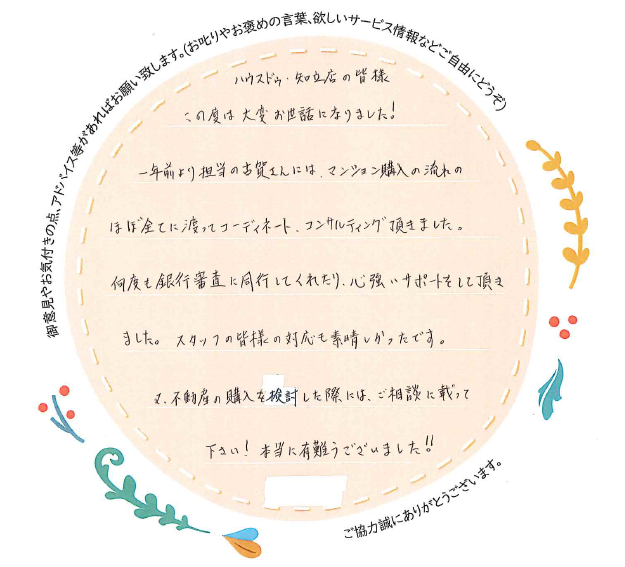 御意見やお気付きの点、アドバイス等があればお願い致します。(お叱りやお褒めの言葉、欲しいサービス情報などご自由にどうぞ)
ハウスドゥ・知立店の皆様
この度は大変お世話になりました!
一年前より担当の古賀さんには、マンション購入の流れの
ほぼ全てに渡ってコーディネート、コンサルティング頂きました。
何度も銀行審査に同行してくれたり、心強いサポートをして頂き
ました。スタッフの皆様の対応も素晴しかったです。
又、不動産の購入を検討した際には、ご相談に載って
下さい!本当に有難うございました!!
ご協力誠にありがとうございます。